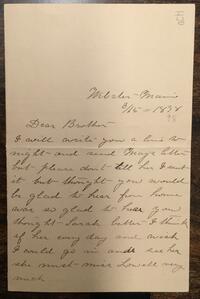 Webster Maine
3/15 - 1898
98
Dear Brother
I will write you a line to
night and send Mays letter
but please don't tell her I sent
it but thought you would
be glad to hear from home
was so glad to hear you
thought Sarah better I think
of her every day and wish
I could go in and see her
she must miss Lowell very
much